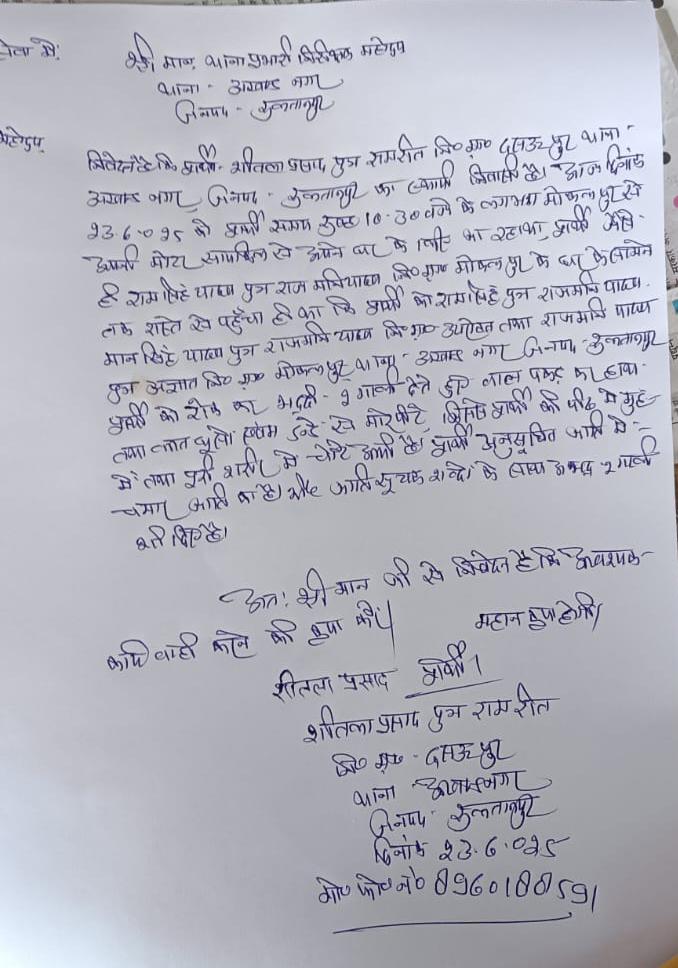 सेवा में,
श्री मान् थाना प्रभारी निरीक्षक महोदय
थाना - अखण्ड नगर
जनपद - सुलतानपुर
महोदय,
निवेदन है कि प्रार्थी शीतला प्रसाद पुत्र रामरीत नि० ग्रा० दसऊपुर थाना -
अखण्ड नगर, जनपद - सुलतानपुर का स्थायी निवासी है। आज दिनांक
23.6.025 को प्रार्थी समय सुबह 10-30 बजे के लगभग मोकलपुर से
अपनी मोटर सायकिल से अपने घर के लिए जा रहा था, प्रार्थी जैसे
ही रामसिंह यादव पुत्र राजमणि यादव नि० ग्रा० मोकलपुर के घर के सामने
तक रास्ते से पहुँचा ही था कि प्रार्थी को रामसिंह पुत्र राजमणि यादव
मान सिंह यादव पुत्र राजमणि यादव नि० ग्रा० उपरोक्त तथा राजमणि यादव
पुत्र अज्ञात नि० ग्रा० मोकलपुर थाना - अखण्ड नगर जनपद - सुलतानपुर
प्रार्थी को रोक कर भद्दी - २ गाली देते हुए लाल पकड़ कर हाथ
तथा लात घूसो डन्डे से मारे पीटे, जिससे प्रार्थी की पीठ में मुह
में तथा पूरी शरीर में चोटे आयी है। प्रार्थी अनुसूचित जाति में -
चमार जाति का है। और जाति सूचक शब्दो के साथ अभद्र २ गाली
भी दिए है।
अत: श्री मान जी से निवेदन है कि आवश्यक
कार्यवाही करने की कृपा करें।
महान कृपा होगी।
शीतला प्रसाद प्रार्थी।
शीतला प्रसाद पुत्र रामरीत
नि० ग्रा० - दसऊपुर
थाना - अखण्डनगर
जनपद - सुलतानपुर
दिनांक 23.6.025
मो० फो० नं० 8960188591